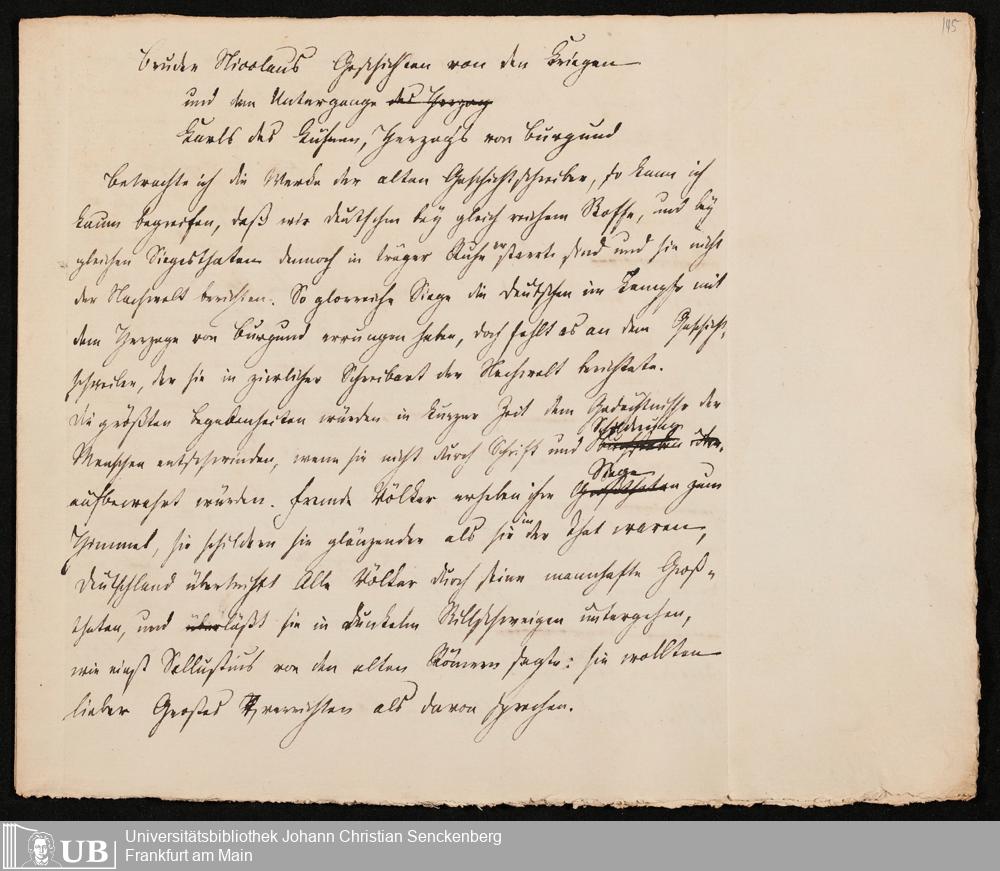 145
Bruder Nicolaus Geschichten von den Kriegen
und dem Untergange des Herzog
Karls des Kühnen, Herzogs von Burgund
Betrachte ich die Werke der alten Geschichtschreiber, so kann ich
kaum begreifen, daß wir Deutschen bey gleich reichem Stoffe, und bey
gleichen Siegesthaten dennoch in träger Ruhe erstarrt sind und sie nicht
der Nachwelt berichten. So glorreiche Siege die Deutschen im Kampfe mit
dem Herzoge von Burgund errungen haben, doch fehlt es an dem Geschicht,
schreiber, der sie in zierlicher Schreibart der Nachwelt berichtete.
Die größten Begebenheiten würden in kurzer Zeit dem Gedächtnisse der
Menschen entschwinden, wenn sie nicht durch Schrift und Buchstaben
Schilderung
aufbewahrt würden. Fremde Völker erheben ihre Großthaten zum
Siege
Himmel, sie schildern sie glänzender als sie in der That waren,
Deutschland übertrifft Alle Völker durch seine mannhafte Groß-
thaten, und überläßt sie in dunkelm Stillschweigen untergehen,
wie einst Sallustius von den alten Römern sagte: sie wollten
lieber Großes verrichten als davon sprechen.
UB
Universitätsbibliothek Johann Christian Senckenberg
Frankfurt am Main